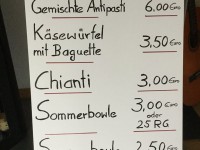 Gemischte Antipasti 6,00 Euro
Käsewürfel
mit Baguette 3,50 Euro
Chianti 3,00 Euro
Sommerbowle 3,00 Euro
oder
25 RG
2,50